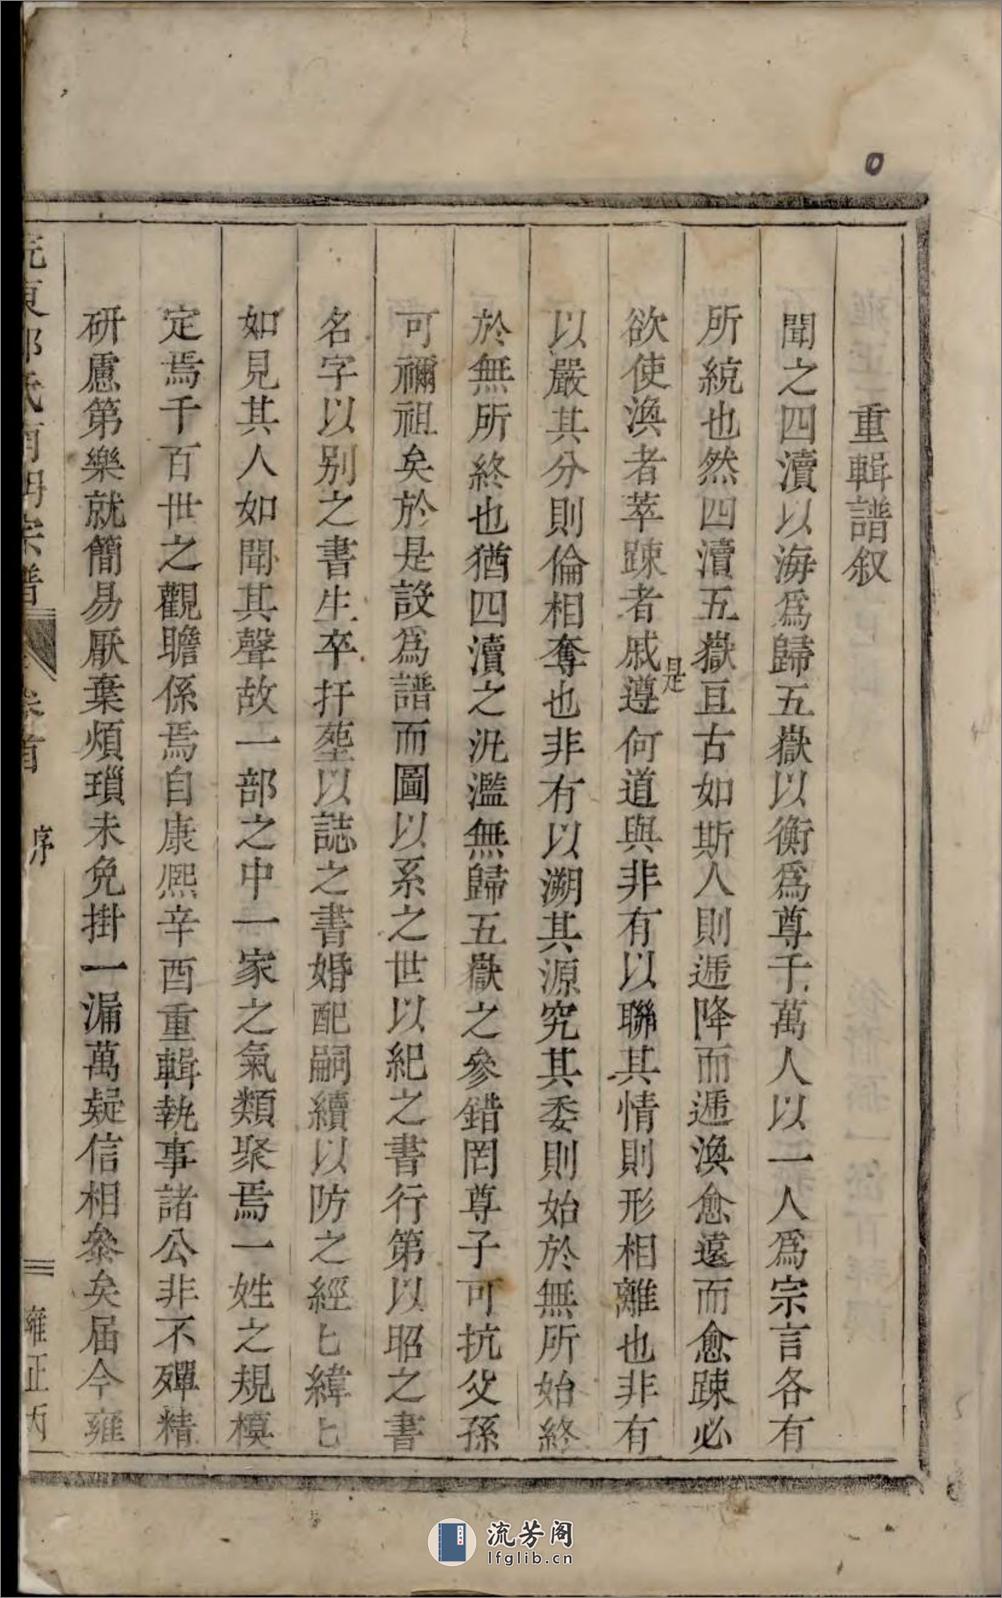 重輯譜叙
聞之四瀆以海爲歸五嶽以衡爲尊千萬人以一人爲宗言各有
所統也然四瀆五嶽亘古如斯人則遞降而遞渙愈遠而愈踈必
欲使渙者萃踈者戚遵何道與非有以聯其情則形相離也非有
是
以嚴其分則倫相奪也非有以溯其源究其委則始於無所始終
於無所終也猶四瀆之汎濫無歸五嶽之參錯罔尊子可抗父孫
可禰祖矣於是設爲譜而圖以系之世以紀之書行第以昭之書
名字以别之書生卒扞塟以誌之書婚配嗣續以防之經匕緯匕
如見其人如聞其聲故一部之中一家之氣類聚焉一姓之規模
定焉千百世之觀瞻係焉自康熙辛酉重輯執事諸公非不殫精
研慮第樂就簡易厭棄煩瑣未免掛一漏萬疑信相叅矣届今雍
東 氏 宗譜
卷首
序
雍正丙
流芳阁
lfglib.cn